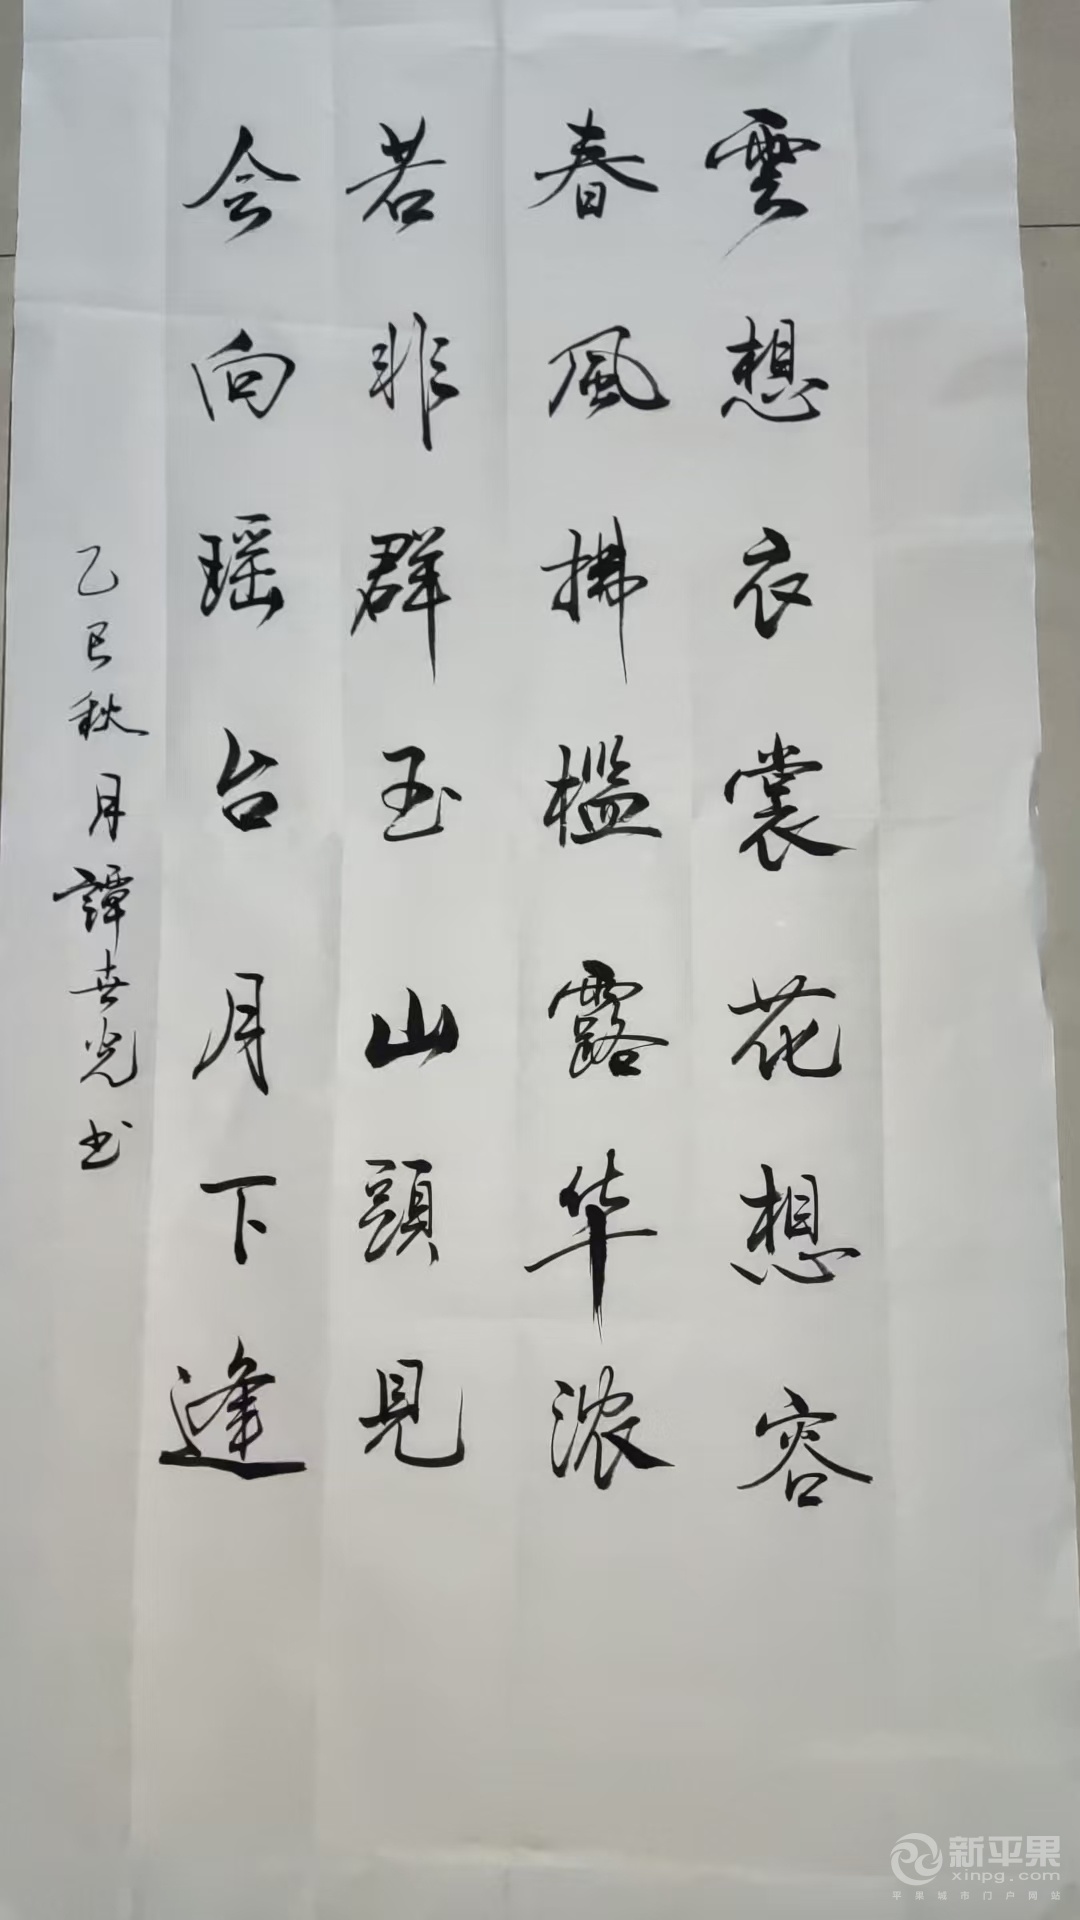 雲想衣裳花想容
春風拂檻露华浓
若非群玉山頭見
会向瑶台月下逢
乙巳秋月譚世光书
新平果
xinpg.com
平果城市门户网站